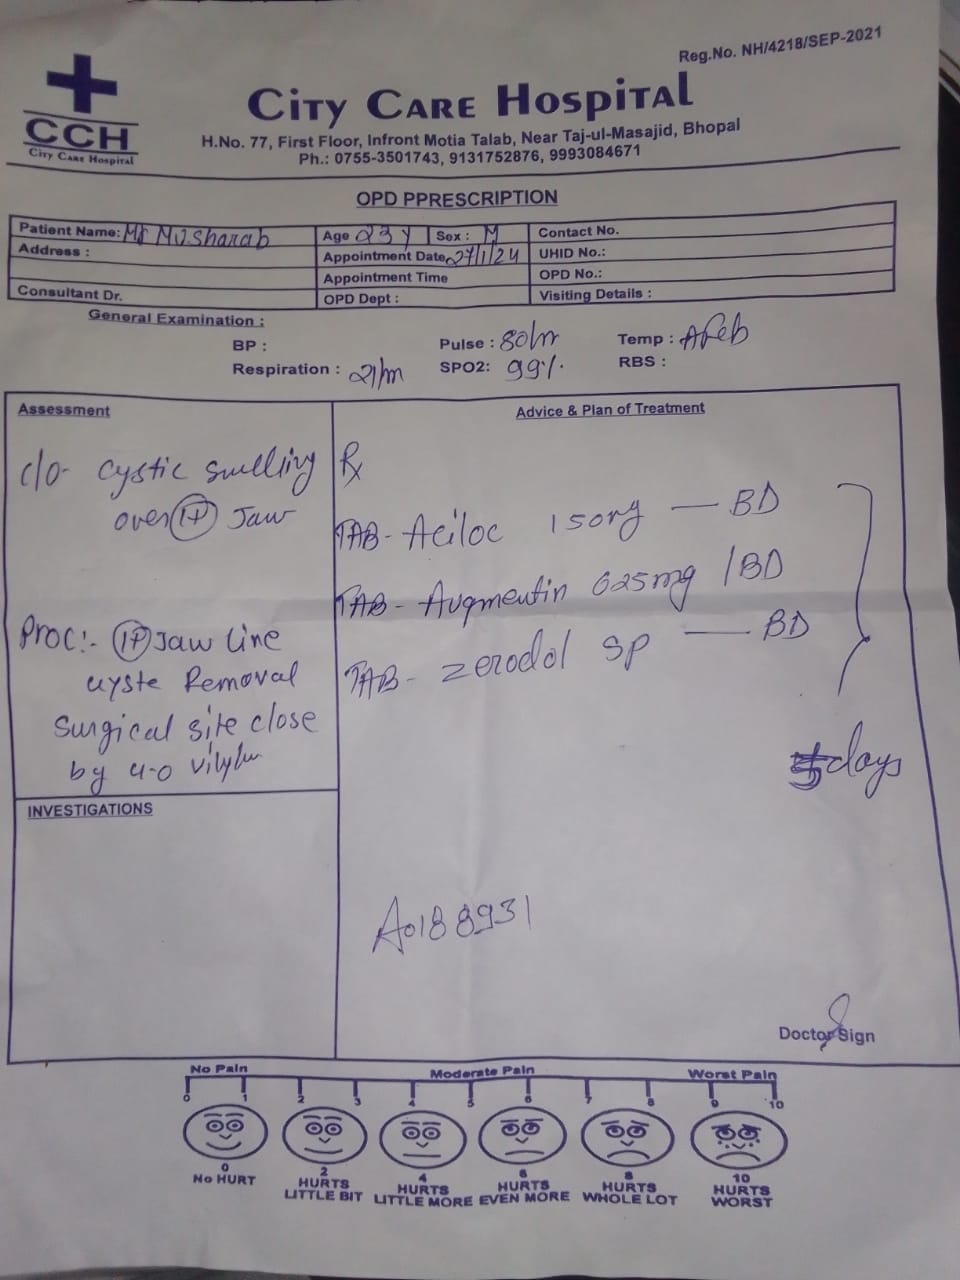 Reg.No. NH/4218/SEP-2021
CCH
City Care Hospital
City Care Hospital
H.No. 77, First Floor, Infront Motia Talab, Near Taj-ul-Masajid, Bhopal
Ph.: 0755-3501743, 9131752876, 9993084671
OPD PPRESCRIPTION
Patient Name: Mr Musharab Age 23 y Sex : M Contact No.
Address : Appointment Date 27/1/24 UHID No.:
Appointment Time OPD No.:
Consultant Dr. OPD Dept : Visiting Details :
General Examination :
BP : Pulse : 80/m Temp : Afeb
Respiration : 21/m SPO2: 99% RBS :
Assessment
c/o- cystic swelling
over Jaw
Proc:- Jaw line
cyste Removal
Surgical site close
by 4-0
INVESTIGATIONS
Advice & Plan of Treatment
Rx
TAB- Aciloc 150mg — BD
TAB- Augmentin 625mg / BD
TAB- Zerodol SP — BD
5 days
A0188931
Doctor Sign
No Pain Moderate Pain Worst Pain
0 1 2 3 4 5 6 7 8 9 10
0 2 4 6 8 10
No HURT HURTS LITTLE BIT HURTS LITTLE MORE HURTS EVEN MORE HURTS WHOLE LOT HURTS WORST